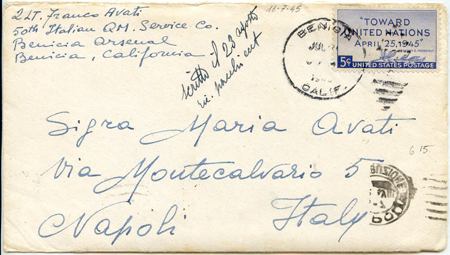 2 LT. Franco Avati
50th Italian QM. Service Co.
Benicia Arsenal
Benicia, California
11-7-45
scritto il 23 agosto
BENICIA
JUL
CALIF.
"TOWARD
UNITED NATIONS
APRIL 25, 1945"
5¢ UNITED STATES POSTAGE
Sigra Maria Avati
Via Montecalvario 5
Napoli Italy
615